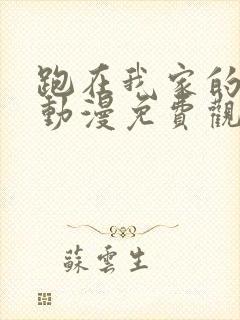 跑在我家的
動漫免費觀
蘇雲生